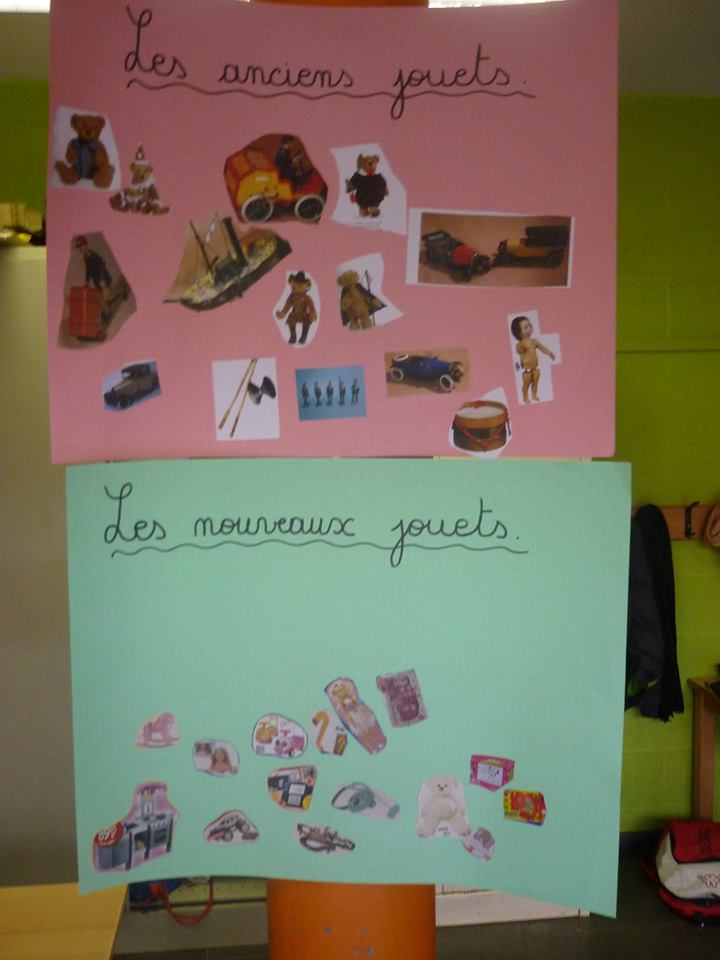 Les anciens jouets.
Les nouveaux jouets.